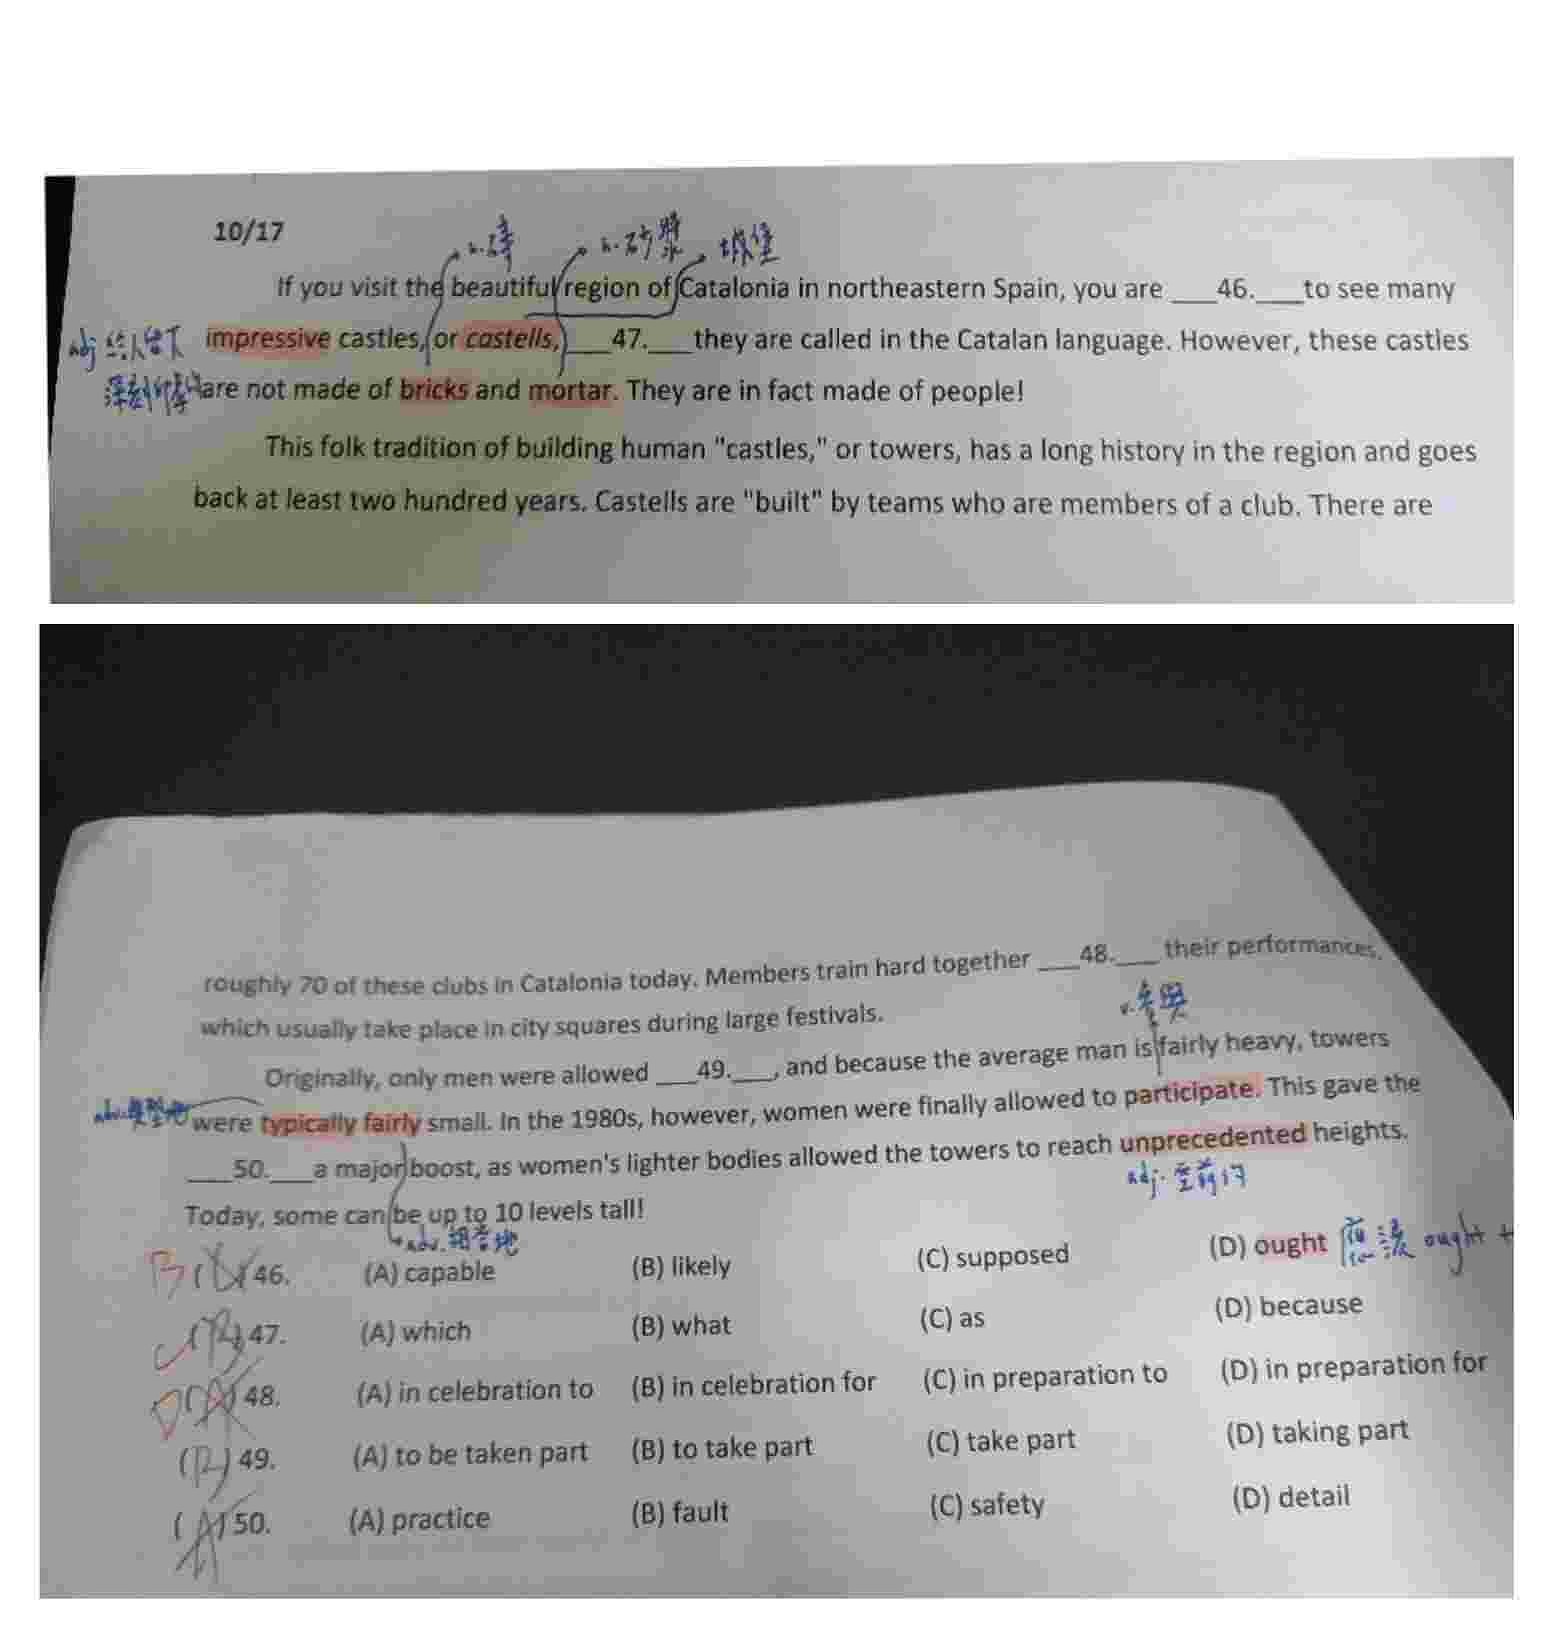 10/17
n.磚 n.砂漿 城堡
If you visit the beautiful region of Catalonia in northeastern Spain, you are ___46.___to see many
adj 給人留下 impressive castles, or castells, ___47.___they are called in the Catalan language. However, these castles
深刻印象的 are not made of bricks and mortar. They are in fact made of people!
This folk tradition of building human "castles," or towers, has a long history in the region and goes
back at least two hundred years. Castells are "built" by teams who are members of a club. There are
roughly 70 of these clubs in Catalonia today. Members train hard together ___48.___ their performances,
which usually take place in city squares during large festivals.
v.參與
Originally, only men were allowed ___49.___, and because the average man is fairly heavy, towers
adv.典型地 were typically fairly small. In the 1980s, however, women were finally allowed to participate. This gave the
___50.___a major boost, as women's lighter bodies allowed the towers to reach unprecedented heights.
adj.空前的
Today, some can be up to 10 levels tall!
adv.相當地
B ( ) 46. (A) capable (B) likely (C) supposed (D) ought 應該 ought t
( ) 47. (A) which (B) what (C) as (D) because
D (A) 48. (A) in celebration to (B) in celebration for (C) in preparation to (D) in preparation for
(B) 49. (A) to be taken part (B) to take part (C) take part (D) taking part
(A) 50. (A) practice (B) fault (C) safety (D) detail